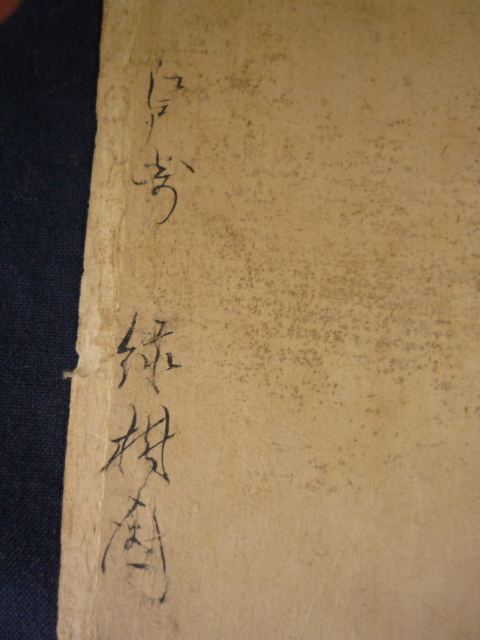 江戸崎 緑樹園